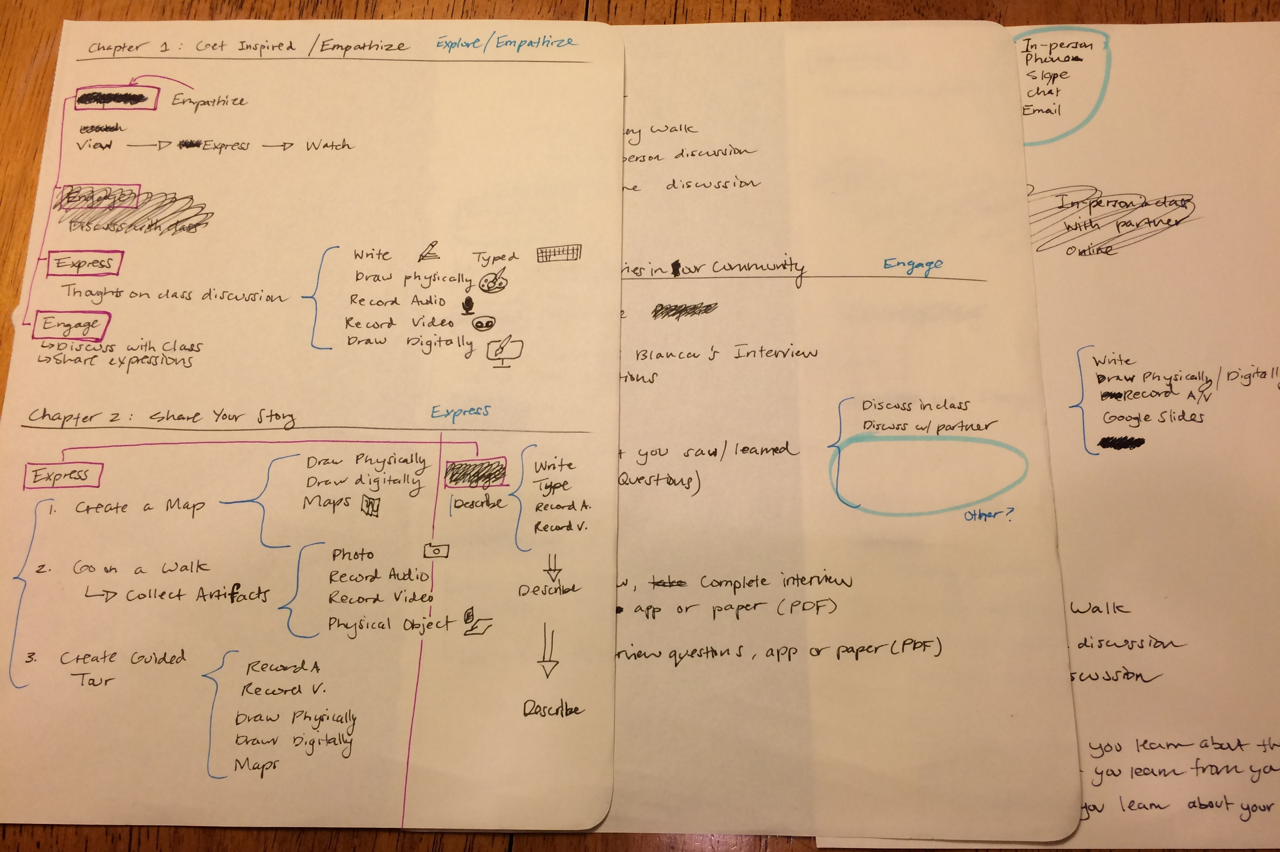 Chapter 1: Get Inspired / Empathize Explore/Empathize
Empathize
View → Express → Watch
Engage
Discuss with class
Express
Thoughts on class discussion
Write Typed
Draw physically
Record Audio
Record Video
Draw Digitally
Engage
↳ Discuss with Class
↳ Share expressions
Chapter 2: Share Your Story Express
Express
1. Create a Map
Draw Physically
Draw digitally
Maps
Describe
Write
Type
Record A.
Record V.
2. Go on a Walk
↳ Collect Artifacts
Photo
Record Audio
Record Video
Physical Object
Describe
3. Create Guided
Tour
Record A
Record V.
Draw Physically
Draw Digitally
Maps
Describe
Walk
person discussion
discussion
ries in Your Community Engage
Blanca's Interview
tions
you saw/learned
Questions)
Discuss in class
Discuss w/ partner
Other?
w, take Complete interview
app or paper (PDF)
rview questions, app or paper (PDF)
In-person
Phone
Skype
Chat
Email
In-person in class
with partner
online
Write
Draw Physically/Digitally
Record A/V
Google Slides
Walk
discussion
scussion
you learn about th
you learn from yo
you learn about your